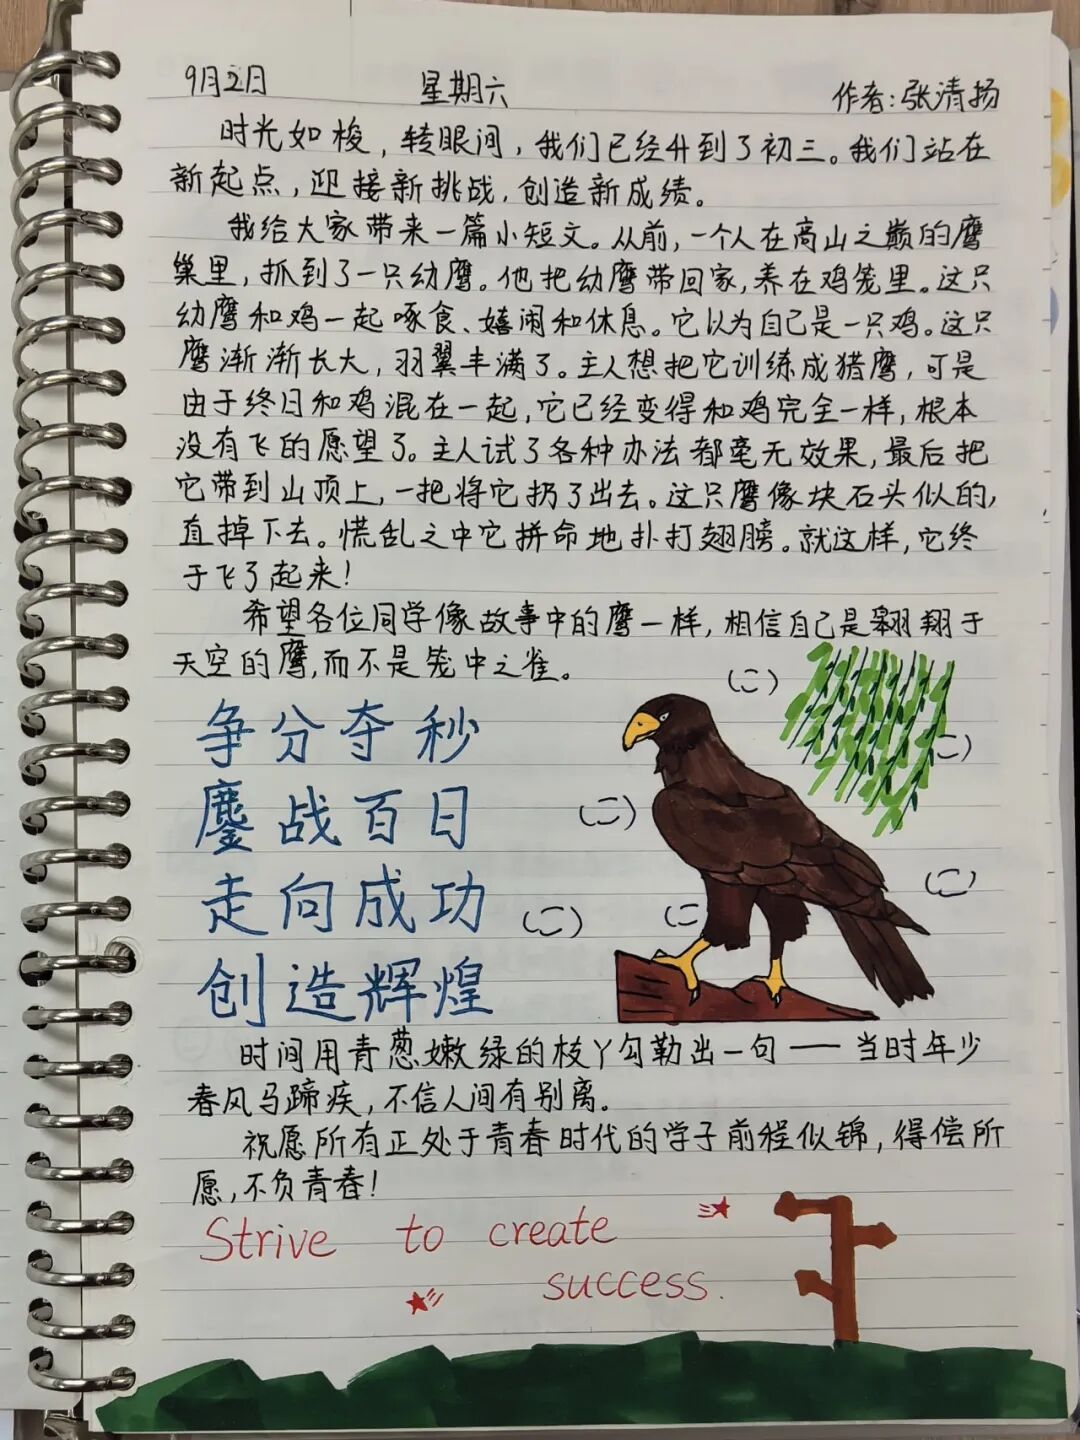 9月2日 星期六 作者:张清扬
时光如梭,转眼间,我们已经升到了初三。我们站在
新起点,迎接新挑战,创造新成绩。
我给大家带来一篇小短文。从前,一个人在高山之巅的鹰
巢里,抓到了一只幼鹰。他把幼鹰带回家,养在鸡笼里。这只
幼鹰和鸡一起啄食、嬉闹和休息。它以为自己是一只鸡。这只
鹰渐渐长大,羽翼丰满了。主人想把它训练成猎鹰,可是
由于终日和鸡混在一起,它已经变得和鸡完全一样,根本
没有飞的愿望了。主人试了各种办法都毫无效果,最后把
它带到山顶上,一把将它扔了出去。这只鹰像块石头似的,
直掉下去。慌乱之中它拼命地扑打翅膀。就这样,它终
于飞了起来!
希望各位同学像故事中的鹰一样,相信自己是翱翔于
天空的鹰,而不是笼中之雀。
争分夺秒
鏖战百日
走向成功
创造辉煌
时间用青葱嫩绿的枝丫勾勒出一句——当时年少
春风马蹄疾,不信人间有别离。
祝愿所有正处于青春时代的学子前程似锦,得偿所
愿,不负青春!
Strive to create
success.